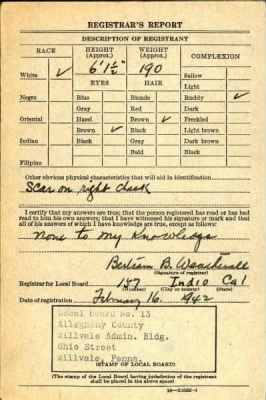 REGISTRAR'S REPORT
DESCRIPTION OF REGISTRANT
RACE HEIGHT (Approx.) WEIGHT (Approx.) COMPLEXION
White ✓ 6' 1½" 190 Sallow
EYES HAIR Light
Negro Blue Blonde Ruddy ✓
Gray Red Dark
Oriental Hazel Brown ✓ Freckled
Brown ✓ Black Light brown
Indian Black Gray Dark brown
Bald Black
Filipino
Other obvious physical characteristics that will aid in identification
Scar on right cheek
I certify that my answers are true; that the person registered has read or has had
read to him his own answers; that I have witnessed his signature or mark and that
all of his answers of which I have knowledge are true, except as follows:
None to my knowledge
Bertram B.
(Signature of registrar)
Registrar for Local Board 157 Indio Cal
(Number) (City or county) (State)
Date of registration February 16 1942
Local Board No. 13
Allegheny County
Millvale Admin. Bldg.
Ohio Street
Millvale, Penna.
(STAMP OF LOCAL BOARD)
(The stamp of the Local Board having jurisdiction of the registrant
shall be placed in the above space)